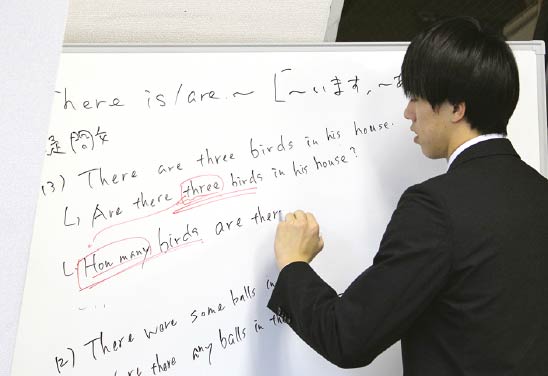 There is/are ~ [~います, ~あ
疑問文
(3) There are three birds in his house.
Are there three birds in his house?
How many birds are ther
....
(2) There were some balls in
there any balls in th